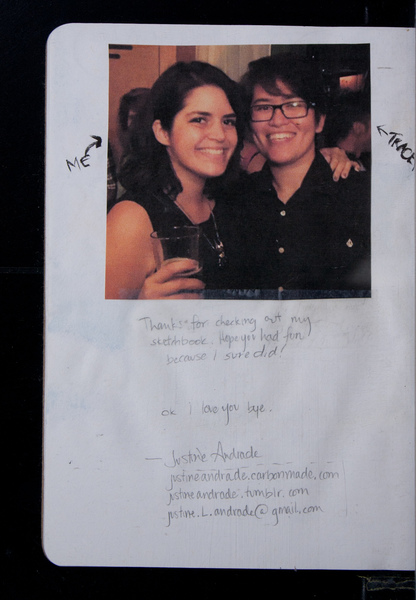 ME
TRACY
Thanks for checking out my
sketchbook. Hope you had fun
because I sure did!
ok i love you bye.
— Justine Andrade
justineandrade.carbonmade.com
justineandrade.tumblr.com
justine.L.andrade@gmail.com